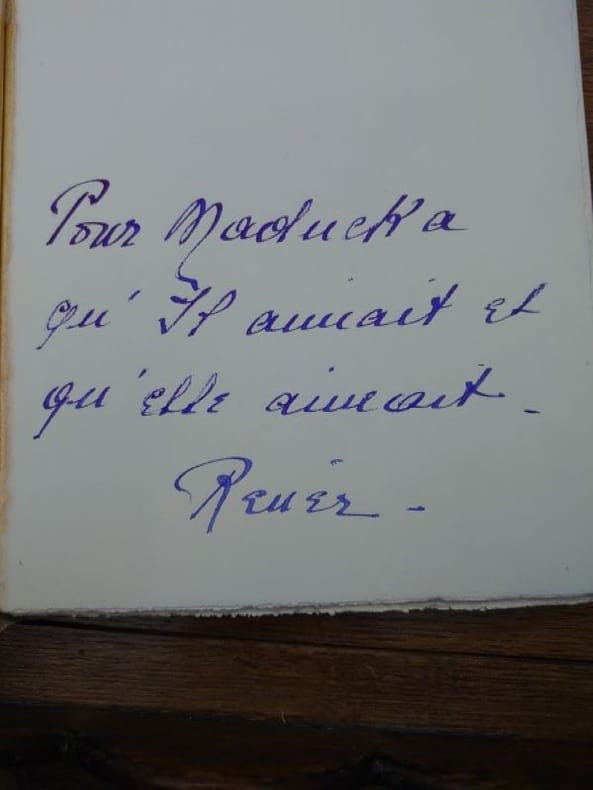 Pour Maducka
qu'Il aimait et
qu'elle aimait.